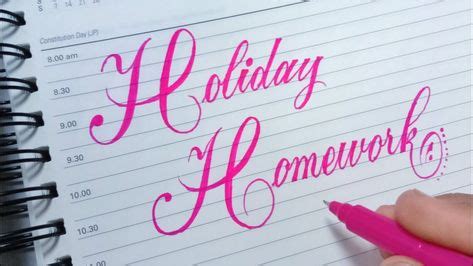 Constitution Day (JP)
8.00 am
Holiday
8.30
9.00
9.30
Homework:
10.00
10.30